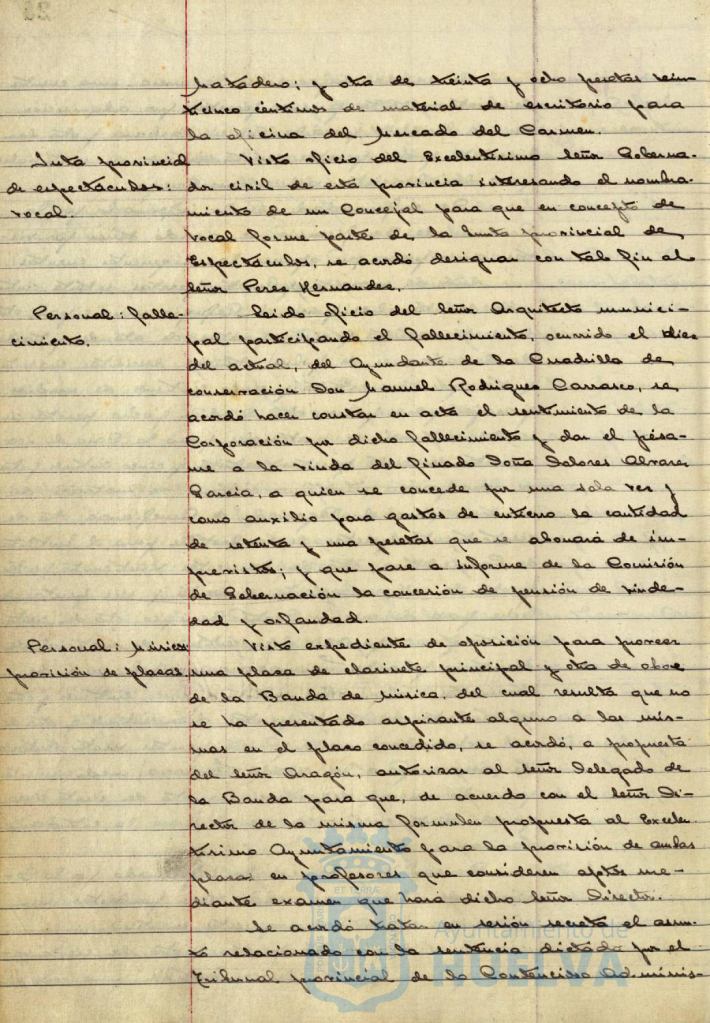 Matadero; y otra de treinta y ocho pesetas vein-
ticinco céntimos de material de escritorio para
la oficina del Mercado del Carmen.
Junta provincial
de espectáculos:
vocal.
Visto oficio del Excelentísimo Señor Goberna-
dor civil de esta provincia interesando el nombra-
miento de un Concejal para que en concepto de
vocal forme parte de la Junta provincial de
Espectáculos, se acordó designar con tal fin al
Señor Perez Hernandez.
Personal: falle-
cimiento.
Leido oficio del Señor Arquitecto munici-
pal participando el fallecimiento, ocurrido el diez
del actual, del Ayudante de la Cuadrilla de
conservación Don Manuel Rodriguez Carrasco, se
acordó hacer constar en acta el sentimiento de la
Corporación por dicho fallecimiento y dar el pésa-
me a la viuda del finado Doña Dolores Alvarez
Garcia, a quien se concede por una sola vez y
como auxilio para gastos de entierro la cantidad
de setenta y una pesetas que se abonará de im-
previstos; y que pase a informe de la Comisión
de Gobernación la concesión de pensión de viude-
dad y orfandad.
Personal: Músicos
provisión de plazas.
Visto expediente de oposición para proveer
una plaza de clarinete principal y otra de oboe
de la Banda de música, del cual resulta que no
se ha presentado aspirante alguno a las mis-
mas en el plazo concedido, se acordó, a propuesta
del Señor Aragón, autorizar al Señor Delegado de
la Banda para que, de acuerdo con el Señor Di-
rector de la misma formulen propuesta al Excelen-
tísimo Ayuntamiento para la provisión de ambas
plazas en profesores que consideren aptos me-
diante examen que hará dicho Señor Director.
Se acordó tratar en sesión secreta el asun-
to relacionado con la sentencia dictada por el
Tribunal provincial de lo Contencioso Adminis-
Ayuntamiento de
HUELVA